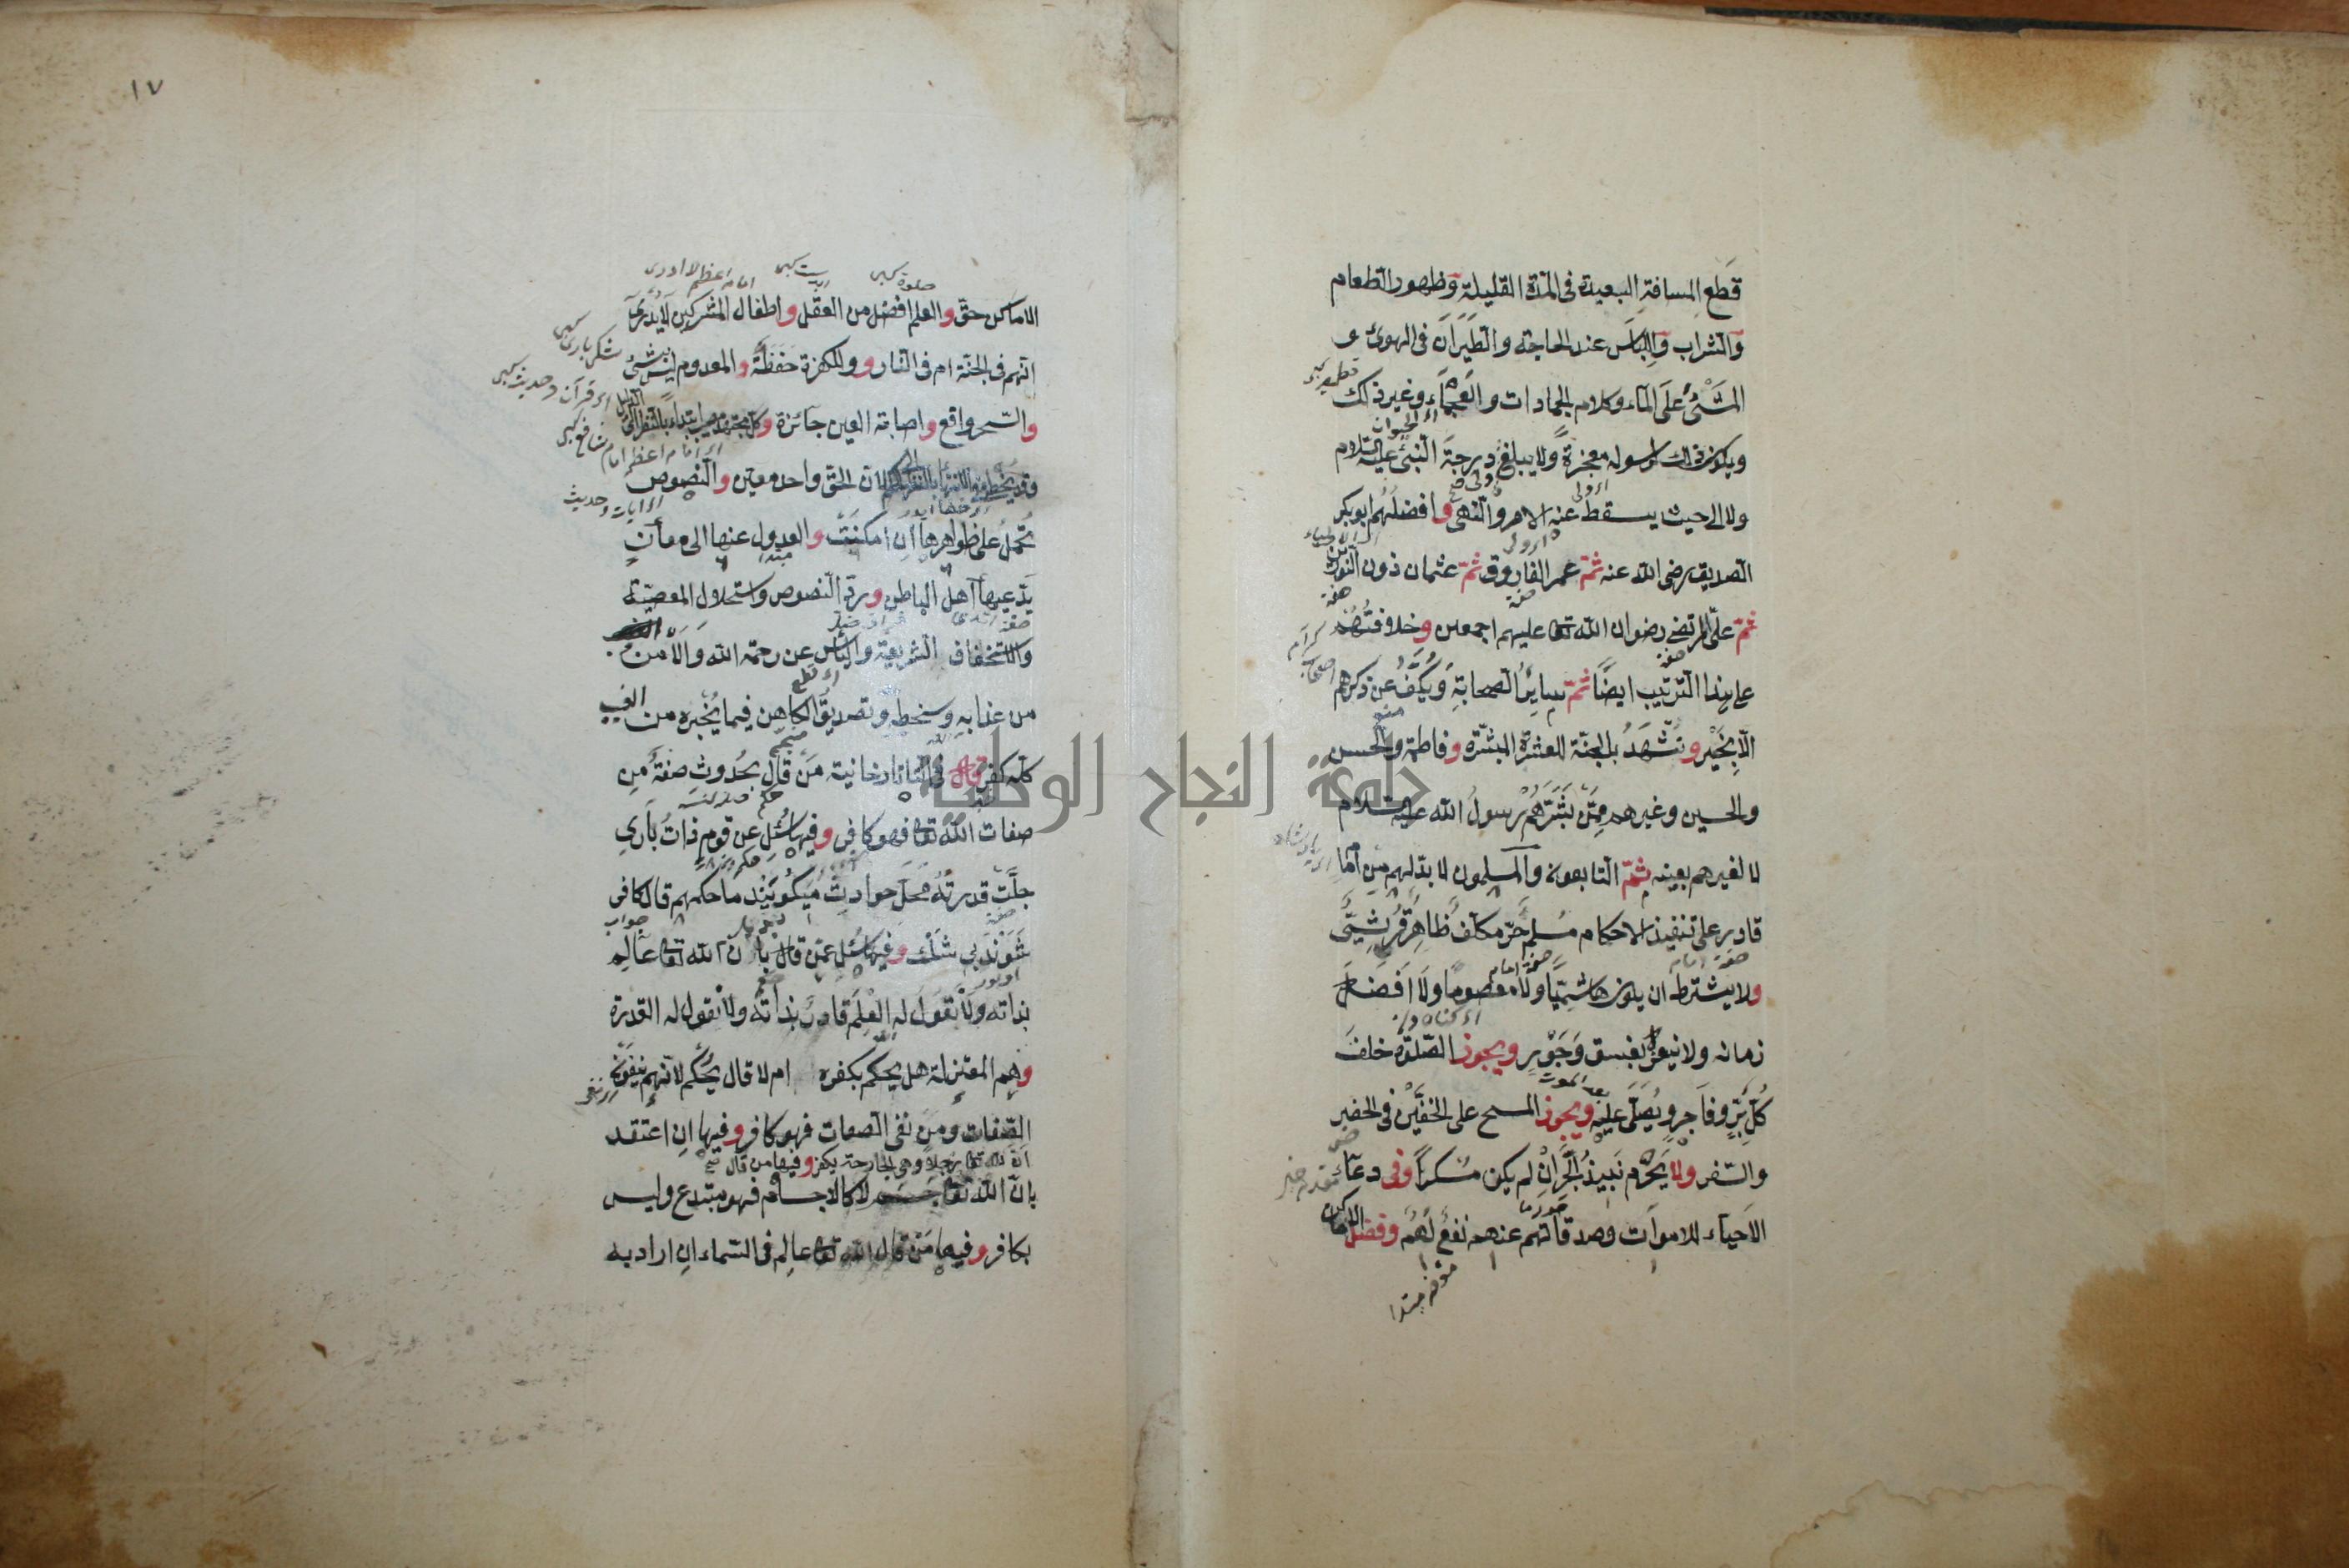 قطع المسافة البعيدة فى المدة القليلة وظهور الطعام
والشراب واللباس عند الحاجة والطيران فى الهوى و
المشى على الماء وكلام الجمادات والعجماء وغير ذلك
ويكون ذلك لرسوله معجزة ولا يبلغ درجة النبى عليه السلام
ولا الى حيث يسقط عنه الامر والنهى وافضلهم ابو بكر
الصديق رضى الله عنه ثم عمر الفاروق ثم عثمان ذون النورين
ثم على المرتضى رضوان الله تعا عليهم اجمعين وخلافتهم
على هذا الترتيب ايضا ثم سائر الصحابة ويكف عن ذكرهم
الا بخير ونشهد بالجنة للعشرة المبشرة وفاطمة والحسن
والحسين وغيرهم ممن بشرهم رسول الله عليه السلام
لا لغيرهم بعينه ثم التابعون والمسلمون لا بد لهم من امام
قادر على تنفيذ الاحكام مسلم حر مكلف ظاهر قرشى
ولا يشترط ان يكون هاشميا ولا معصوما ولا افضل
زمانه ولا ينعزل بفسق وجور ويجوز الصلوة خلف
كل بر وفاجر ويصلى عليه ويجوز المسح على الخفين فى الحضر
والسفر ولا يحرم نبيذ الجر ان لم يكن مسكرا وفى دعاء
الاحياء للاموات وصدقاتهم عنهم نفع لهم وفضل الاماكن
جامعة النجاح الوطنية
١٧
الاماكن حق والعلم افضل من العقل واطفال المشركين لا يدرى
انهم فى الجنة ام فى النار وللكفرة حفظة والمعدوم ليس بشئ
والسحر واقع واصابة العين جائزة وكل مجتهد مصيب ابتداء بالنظر الى الدليل
وقد يخطئ لان الحق واحد معين والنصوص
تحمل على ظواهرها ان امكنت والعدول عنها الى معان
يدعيها اهل الباطن ورد النصوص واستحلال المعصية
والاستخفاف الشريعة واليأس عن رحمة الله والامن
من عذابه وسخطه وتصديق الكاهن فيما يخبره من الغيب
كله كفر قال فى التاتارخانية من قال بحدوث صفة من
صفات الله تعا فهو كافر وفيها سئل عن قوم ذات بارى
جلت قدرته محل حوادث ميكويند ما حكمهم قال كافر
شوند بى شك وفيها سئل عمن قال بان الله تعا عالم
بذاته ولا نقول له العلم قادر بذاته ولا نقول له القدرة
وهم المعتزلة هل يحكم بكفره ام لا قال يحكم لانهم ينفون
الصفات ومن نفى الصفات فهو كافر وفيها ان اعتقد
ان لله تعا رجلا وهى الجارحة يكفر وفيها من قال صح
بان الله تعا جسم لا كالاجسام فهو مبتدع وليس
بكافر وفيها من قال الله تعا عالم فى السماء ان اراد به